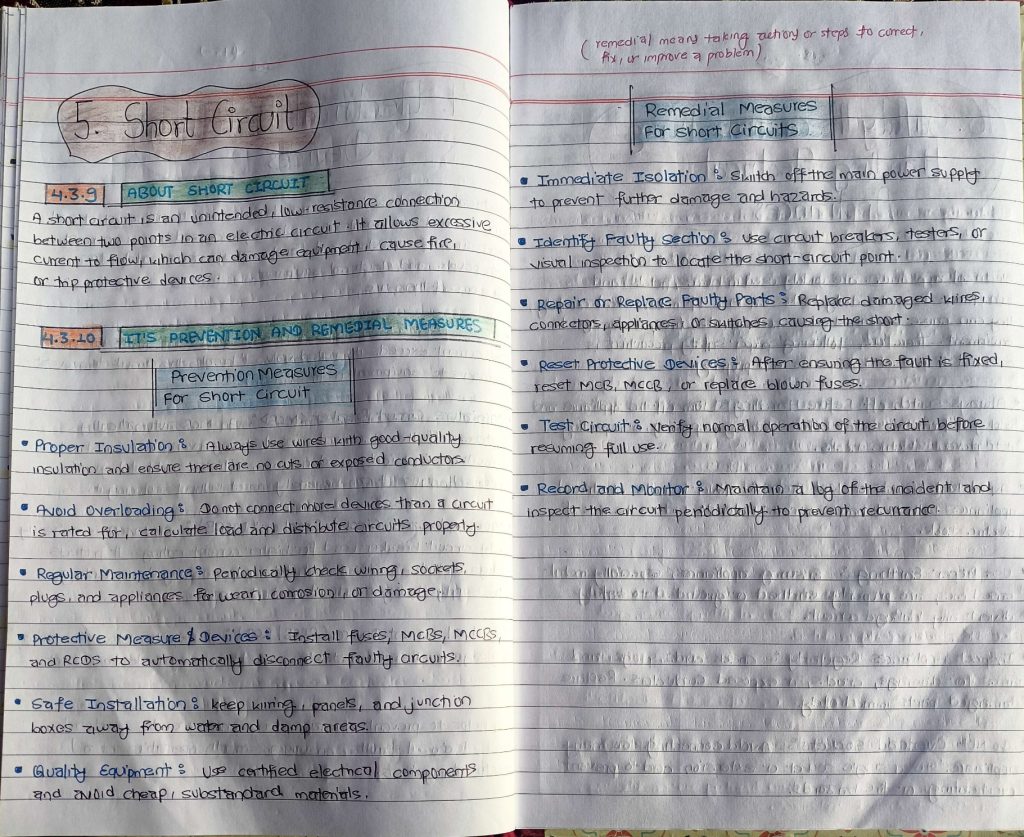 5. Short Circuit
4.3.9 ABOUT SHORT CIRCUIT
A short circuit is an unintended, low-resistance connection
between two points in an electric circuit. It allows excessive
current to flow, which can damage equipment, cause fire,
or trip protective devices.
4.3.10 IT'S PREVENTION AND REMEDIAL MEASURES
Prevention Measures
For Short Circuit
• Proper Insulation : Always use wires with good-quality
insulation and ensure there are no cuts or exposed conductors.
• Avoid Overloading : Do not connect more devices than a circuit
is rated for, calculate load and distribute circuits properly.
• Regular Maintenance : Periodically check wiring, sockets,
plugs, and appliances for wear, corrosion, or damage.
• Protective Measure & Devices : Install fuses, MCBs, MCCBs,
and RCDs to automatically disconnect faulty circuits.
• Safe Installation : keep wiring, panels, and junction
boxes away from water and damp areas.
• Quality Equipment : Use certified electrical components
and avoid cheap, substandard materials.
(remedial means taking actions or steps to correct,
fix, or improve a problem)
Remedial Measures
For Short Circuits
• Immediate Isolation : Switch off the main power supply
to prevent further damage and hazards.
• Identify Faulty Section : use circuit breakers, testers, or
visual inspection to locate the short-circuit point.
• Repair or Replace Faulty Parts : Replace damaged wires,
connectors, appliances, or switches causing the short.
• Reset Protective Devices : After ensuring the fault is fixed,
reset MCB, MCCB, or replace blown fuses.
• Test Circuit : Verify normal operation of the circuit before
resuming full use.
• Record and Monitor : Maintain a log of the incident and
inspect the circuit periodically to prevent recurrance.